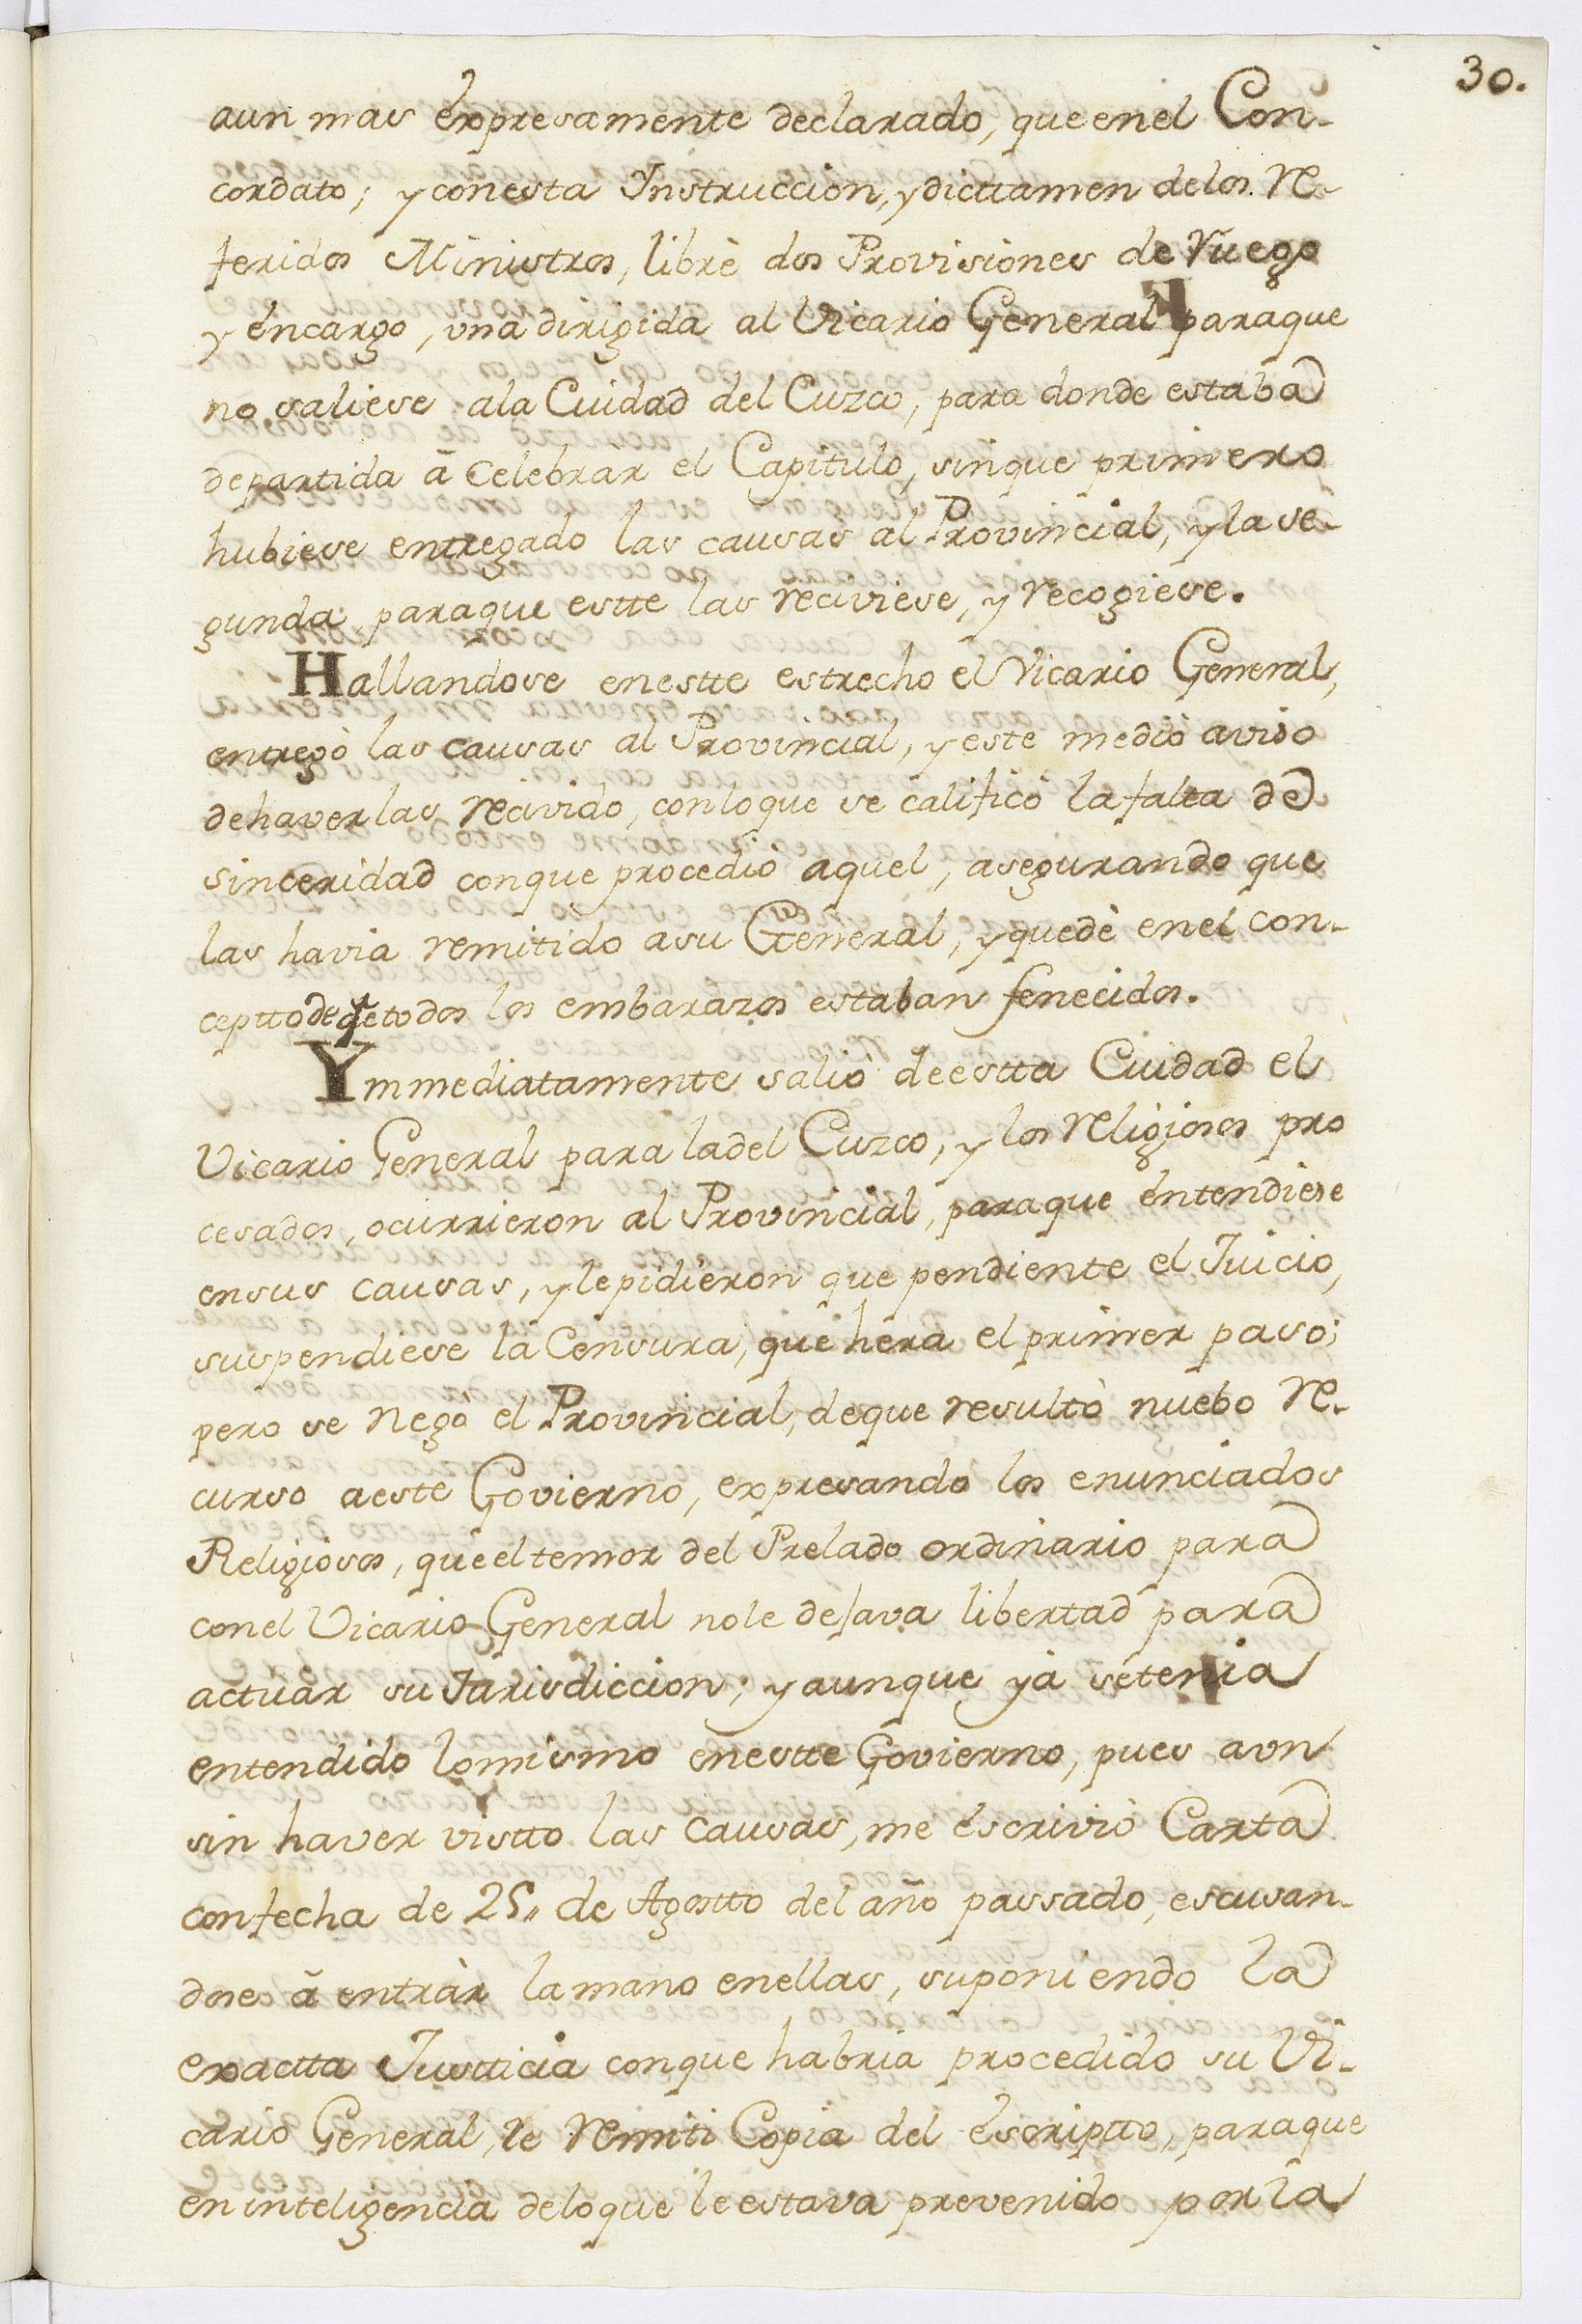 30.
aun mas expresamente declarado, que en el Con-
cordato; y con esta Ynstruccion, y dicttamen de los re-
feridos Ministros, librè dos Provisiones de ruego
y éncargo, vna dirigida al Vicario General paraque
no saliese ala Ciudad del Cuzco, para donde estaba
departida ã Celebrar el Capitulo, sinque primero
hubiese entregado las causas al Provincial, y la se-
gunda paraque estte las reciviese, y recogiese.
Hallandose enestte estrecho el Vicario General,
entregò las causas al Provincial, y este medió aviso
dehaverlas recivido, conloque se calificó la falta de
sinceridad conque procedió aquel, asegurando que
las havia remitido asu General, y quedè enel con-
cepttodeqe todos los embarazos estaban fenecidos.
Ymmediatamente salió deestta Ciudad el
Vicario General para ladel Cuzco, y los religiosos pro
cesados, ocurrieron al Provincial, paraque éntendiese
ensus causas, y lepidieron que pendiente el Juicio,
suspendiese la Censura, que hera el primer paso;
pero se negò el Provincial, deque resultò nuebo re-
curso aeste Govierno, expresando los enunciados
Religiosos, que el temor del Prelado ordinario para
conel Vicario General nole dejava libertad para
actuàr su Jurisdiccion; y aunque yá setenia
entendido lomismo enestte Govierno, pues aun
sin haver vistto las causas, me éscrivió Carta
confecha de 25,, de Agostto del año passado, escusan-
dose ã entràr la mano enellas, suponiendo la
exactta Justticia conque habria procedido su Vi-
cario General, le remiti Copia del éscriptto, paraque
en inteligencia deloque le estava prevenido por la